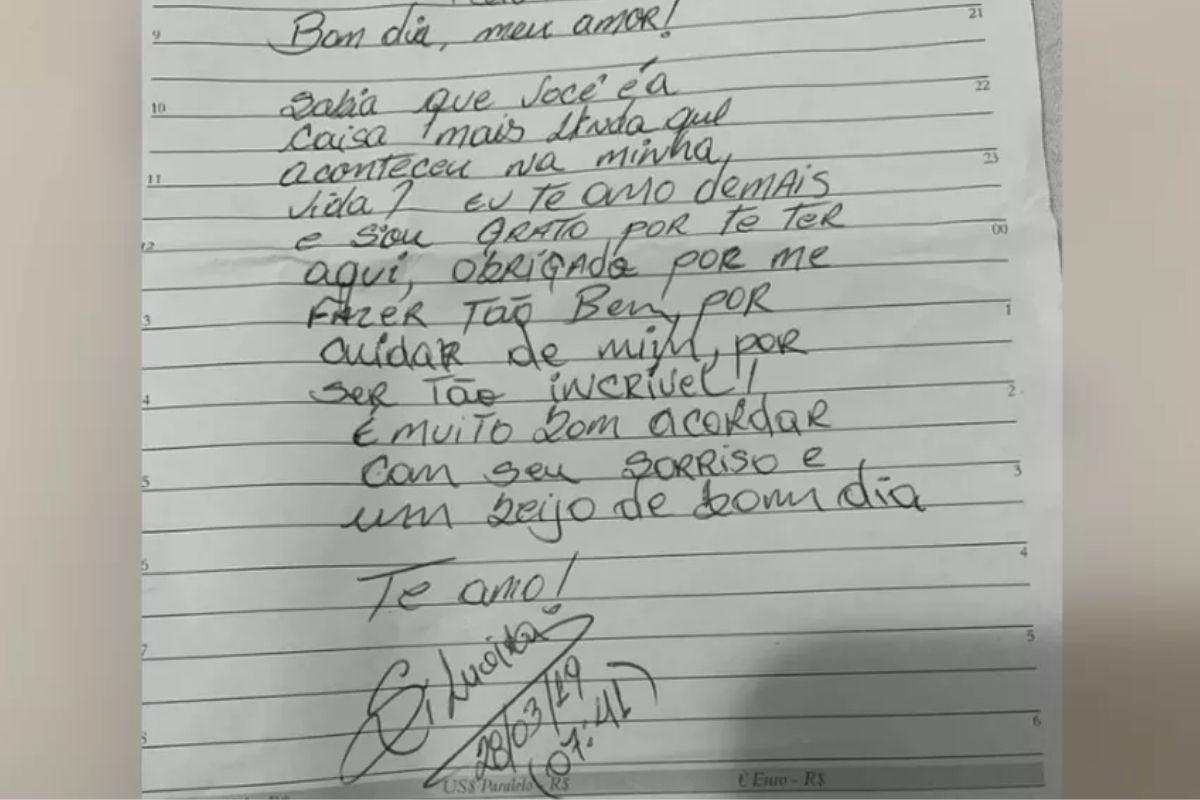 9 Bom dia, meu amor! 21
Sabia que você é a 22
10 Coisa mais linda que
aconteceu na minha, 23
11 vida? Eu te amo demais
e sou grato por te ter 00
12 aqui, obrigado por me
Fazer tão bem, por 1
3 cuidar de mim, por
ser tão incrível! 2
4 É muito bom acordar
com seu sorriso e 3
5 um beijo de bom dia
4
6 Te amo!
5
7
28/03/19
(07:41) 6
8
US$ Paralelo - R$ € Euro - R$